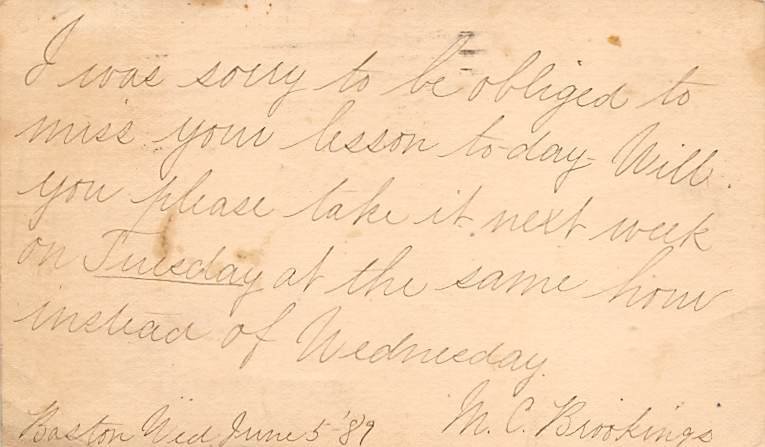 I was sorry to be obliged to
miss your lesson to-day. Will
you please take it next week
on Tuesday at the same hour
instead of Wednesday.
M. C. Brookings
Boston Wed June 5 '89